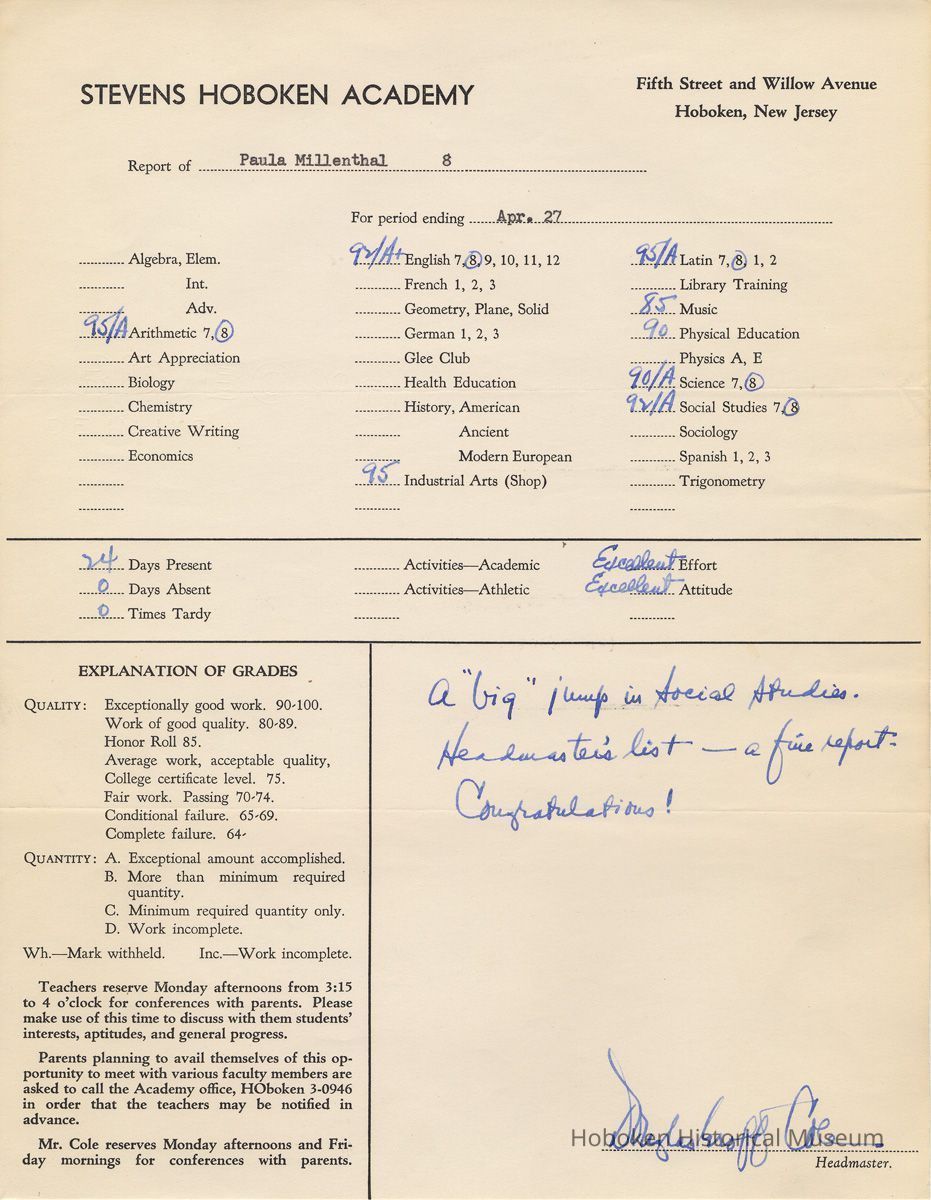 STEVENS HOBOKEN ACADEMY
Fifth Street and Willow Avenue
Hoboken, New Jersey
Report of Paula Millenthal 8
For period ending Apr. 27
Algebra, Elem.
Int.
Adv.
95/A Arithmetic 7, 8
Art Appreciation
Biology
Chemistry
Creative Writing
Economics
92/A+ English 7, 8, 9, 10, 11, 12
French 1, 2, 3
Geometry, Plane, Solid
German 1, 2, 3
Glee Club
Health Education
History, American
Ancient
Modern European
95 Industrial Arts (Shop)
95/A Latin 7, 8, 1, 2
Library Training
85 Music
90 Physical Education
Physics A, E
90/A Science 7, 8
92/A Social Studies 7, 8
Sociology
Spanish 1, 2, 3
Trigonometry
24 Days Present
0 Days Absent
0 Times Tardy
Activities—Academic
Activities—Athletic
Excellent Effort
Excellent Attitude
EXPLANATION OF GRADES
QUALITY: Exceptionally good work. 90-100.
Work of good quality. 80-89.
Honor Roll 85.
Average work, acceptable quality,
College certificate level. 75.
Fair work. Passing 70-74.
Conditional failure. 65-69.
Complete failure. 64-
QUANTITY: A. Exceptional amount accomplished.
B. More than minimum required
quantity.
C. Minimum required quantity only.
D. Work incomplete.
Wh.—Mark withheld. Inc.—Work incomplete.
Teachers reserve Monday afternoons from 3:15
to 4 o'clock for conferences with parents. Please
make use of this time to discuss with them students'
interests, aptitudes, and general progress.
Parents planning to avail themselves of this op-
portunity to meet with various faculty members are
asked to call the Academy office, HOboken 3-0946
in order that the teachers may be notified in
advance.
Mr. Cole reserves Monday afternoons and Fri-
day mornings for conferences with parents.
A "big" jump in Social Studies.
Headmaster's list — a fine report.
Congratulations!
Cole
Hoboken Historical Museum
Headmaster.